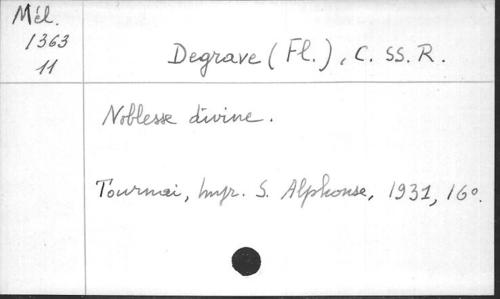 Mél.
1363
11
Degrave (Fl.), C. SS. R.
Noblesse divine.
Tournai, Impr. S. Alphonse, 1931, 16°.